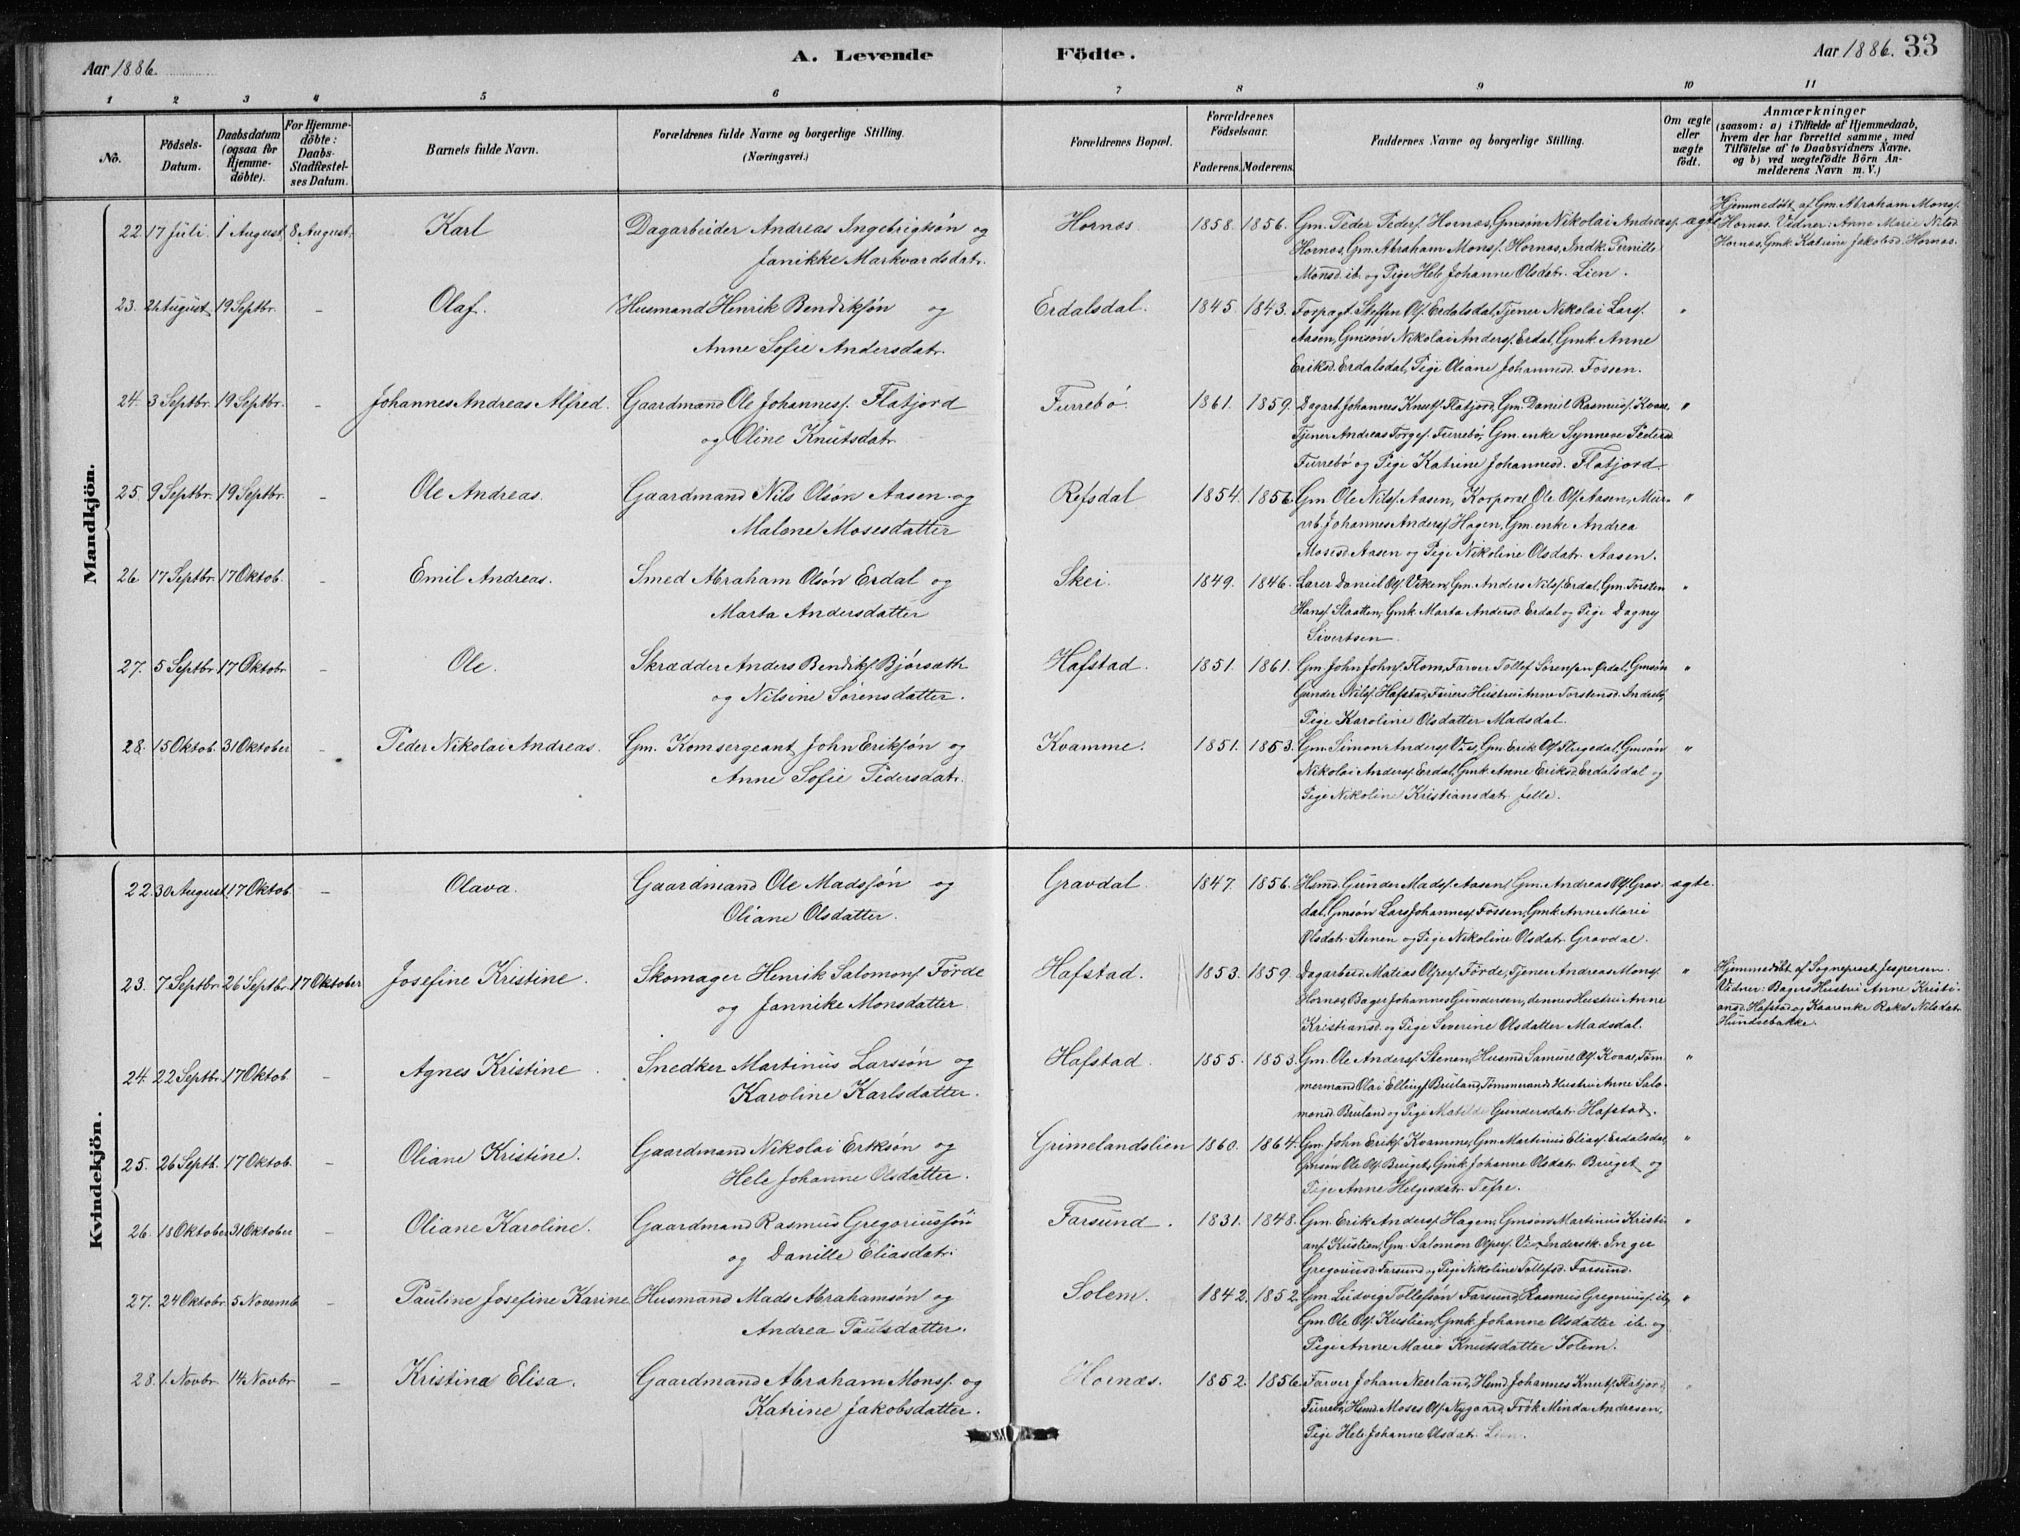 Aar 1886.
A. Levende Födte.
Aar 1886. 33
1 2 3 4 5 6 7 8 9 10 11
No.
Födsels-Datum.
Daabsdatum (ogsaa for Hjemme-döbte).
For Hjemme-döbte: Daabs-Stadfæstel-ses Datum.
Barnets fulde Navn.
Forældrenes fulde Navne og borgerlige Stilling.
(Næringsvei.)
Forældrenes Bopæl.
Forældrenes Födselsaar.
Faderens. Moderens.
Faddernes Navne og borgerlige Stilling.
Om ægte eller uægte födt.
Anmærkninger
(saasom: a) i Tilfælde af Hjemmedaab,
hvem der har forrettet samme, med
Tilföielse af to Daabsvidners Navne.
og b) ved uægtefödte Börn An-
melderens Navn m. V.)
Mandkjön.
22. 17 Juli. 1 August 8 August. Karl Dagarbeider Andreas Ingebrigtsön og Hornes 1858. 1856. Gm. Peder Peders. Hornes, Gmsøn Nikolai Andreas. ægte Hjemmedöbt af Gm. Abraham Mons.
Janikke Markvardsdatr. Hornes, Gm. Abraham Mons. Hornes, Indk. Pernille Hornes. Vidner: Anne Marie Nilsd
Monsd. ib. og Pige Hele Johanne Olsdatr. Lien. Hornes, Gmk. Katrine Jakobsd. Hornes.
23. 21 August 19 Septbr. - Olaf. Husmand Henrik Bendiksön og Erdalsdal. 1845. 1843. Forpagt. Steffen Ols. Erdalsdal, Tjener Nikolai Lars. "
Anne Sofie Andersdatr. Aasen, Gmsön Nikolai Anders. Erdal, Gmk. Anne
Eriksd. Erdalsdal, Pige Oliane Johannesd. Fossen.
24. 3 Septbr. 19 Septbr. - Johannes Andreas Alfred. Gaardmand Ole Johanness. Flatjord Furrebö. 1861. 1859. Dagarb. Johannes Knuts. Flatjord, Gm. Daniel Rasmus. Kvaal, "
og Oline Knutsdatr. Tjener Andreas Torges. Furrebö, Gm. enke Synneve Peders.
Furrebö og Pige Katrine Johannesd. Flatjord.
25. 9 Septbr. 19 Septbr. - Ole Andreas. Gaardmand Nils Olsön Aasen og Refsdal 1854. 1856 Gm. Ole Nils. Aasen, Korporal Ole Ols. Aasen, Mur- "
Malene Mosesdatter arb. Johannes Anders. Hagen, Gm. enke Andrea
Mosesd. Aasen og Pige Nikoline Olsdatr. Aasen.
26 17 Septbr 17 Oktob. - Emil Andreas. Smed Abraham Olsön Erdal og Skei. 1849. 1846. Lærer Daniel Ols. Viken, Gm. Anders Nils. Erdal, Gm. Torsten "
Marta Andersdatter Hans. Slaatten, Gmk. Marta Andersd. Erdal og Pige Dagny
Sivertsen.
27. 5 Septbr 17 Oktobr - Ole. Skrædder Anders Bendiks. Bjørsæth Hafstad. 1851. 1861. Gm. John Johns. Flom, Farver Tollef Sörensen Erdal, Gmsön "
og Nilsine Sörensdatter. Gunder Nils. Hafstad, Furers Hustru Anne Torstensd. Andrebö,
Pige Karoline Olsdatter Madsdal.
28. 15 Oktob. 31 Oktober - Peder Nikolai Andreas. Gm. Komsergeant John Eriksön og Kvamme. 1851. 1853. Gm. Simon Anders. Vie, Gm. Erik Ols. Flugedal, Gmsön "
Anne Sofie Pedersdatr. Nikolai Anders. Erdal, Gmk. Anne Eriksd. Erdalsdal og
Pige Nikoline Kristiansdatr. Felle.
Kvindekjön.
22. 30 August 17 Oktob. - Olava. Gaardmand Ole Madssön og Gravdal. 1847. 1856. Hsmd. Gunder Mads. Aasen, Gm. Andreas Ols. Grav- ægte.
Oliane Olsdatter. dal, Gmsön Lars Johannes. Fossen, Gmk. Anne Marie
Olsdatr. Stenen og Pige Nikoline Olsdatr. Gravdal.
23. 7 Septbr. 26 Septbr. 17 Oktober Josefine Kristine. Skomager Henrik Salomons. Förde Hafstad. 1853. 1859. Dagarbeid. Matias Olpers. Förde, Tjener Andreas Mons. " Hjemmedöbt af Sogneprest Jespersen.
og Jannike Monsdatter. Hornes, Bager Johannes Gundersen, dennes Hustru Anne Vidner: Bagers Hustru Anne Kristi-
Kristiansd. og Pige Severine Olsdatter Madsdal. ansd. Hafstad og Kaarenke Rakel Nilsdatr
Hundsebakke.
24. 22 Septbr 17 Oktob. - Agnes Kristine. Snedker Martinus Larssön og Hafstad. 1855. 1853. Gm. Ole Anders. Stenen, Husmd. Samuel Ols. Kvaal, Töm- "
Karoline Karlsdatter. mermand Olai Ellings. Bruland, Tömmermands Hustru Anne Salo-
monsd. Bruland og Pige Matilde Gundersdatr. Hafstad.
25. 26 Septb. 17 Oktob. - Oliane Kristine. Gaardmand Nikolai Eriksön og Grimelandslien 1860. 1864. Gm. John Eriks. Kvamme, Gm. Martinus Elias. Erdalsdal, "
Hele Johanne Olsdatter. Gmsön Ole Ols. Bruget, Gmk. Johanne Olsdatr. Bruget og
Pige Anne Helgesdatr. Tefre.
26. 18 Oktober 31 Oktober - Oliane Karoline. Gaardmand Rasmus Gregoriussön Farsund. 1831. 1848. Gm. Erik Anders. Hagen, Gmsön Martinus Kristi- "
og Danille Eliasdatr. ans. Kuslien, Gm. Salomon Olpers. Vie, Inderstk. Inger
Gregoriusd. Farsund og Pige Nikoline Tollefsd. Farsund.
27. 24 Oktobr. 5 Novemb - Pauline Josefine Karine Husmand Mads Abrahamsön og Solem. 1842. 1852. Gm. Ludvig Tollefsön Farsund, Rasmus Gregorius. ib., "
Andrea Paulsdatter. Gm. Ole Ols. Kuslien, Gmk. Johanne Olsdatter ib. og
Pige Anne Marie Knutsdatter Solem.
28. 1. Novbr 14 Novbr - Kristine Elisa. Gaardmand Abraham Mons. og Hornæs. 1852. 1856. Farver Johan Neerland, Hsmd. Johannes Knuts. Flatjord, "
Katrine Jakobsdatter. Furrebö, Hsmd. Moses Ols. Nygaard, Frök. Minda Andresen,
Pige Hele Johanne Olsdatr. Lien.